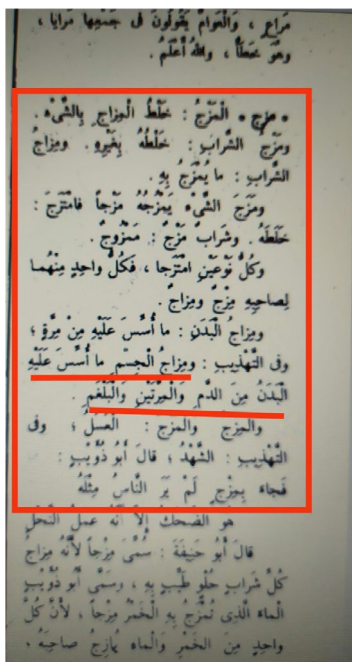 مَرَاءٍ ، وَالْعَوَامُّ يَقُولُونَ فِى جَمْعِهَا مَرَايَا ،
وَهُوَ خَطَأٌ ، وَاللهُ أَعْلَمُ .
• مزج • الْمَزْجُ : خَلْطُ الْمِزَاجِ بِالشَّىْءِ .
وَمَزْجُ الشَّرابِ : خَلْطُهُ بِغَيْرِهِ . وَمِزاجُ
الشَّرابِ : ما يُمْزَجُ بِهِ .
وَمَزَجَ الشَّىْءَ يَمْزُجُهُ مَزْجاً فامْتَزَجَ :
خَلَطَهُ . وشَرابٌ مَزْجٌ : مَمْزُوجٌ .
وكُلُّ نَوْعَيْنِ امْتَزَجا ، فَكُلُّ واحِدٍ مِنْهُما
لِصاحِبِهِ مِزْجٌ ومِزاجٌ .
ومِزاجُ الْبَدَنِ : ما أُسِّسَ عَلَيْهِ مِنْ مِرَّةٍ ؛
وفى التَّهْذِيبِ : ومِزاجُ الْجِسْمِ ما أُسِّسَ عَلَيْهِ
الْبَدَنُ مِنَ الدَّمِ وَالْمِرَّتَيْنِ وَالْبَلْغَمِ .
والمِزج والمَزج : الْعَسَلُ ؛ وفى
التَّهْذِيبِ : الشَّهْدُ ؛ قالَ أَبُو ذُؤَيْبٍ :
فَجاءَ بِمِزْجٍ لَمْ يَرَ النَّاسُ مِثْلَهُ
هو الضَّحكُ إِلاَّ أَنَّهُ عَمَلُ النَّحْلِ
قالَ أَبُو حَنِيفَةَ : سُمِّىَ مِزْجاً لأَنَّهُ مِزاجُ
كُلِّ شَرابٍ حُلْوٍ طَيِّبٍ بِهِ ، وسَمَّى أَبُو ذُؤَيْبٍ
الْماءَ الَّذِى تُمْزَجُ بِهِ الْخَمْرُ مِزْجاً ، لأَنَّ كُلَّ
واحِدٍ مِنَ الْخَمْرِ وَالْماءِ يُمازِجُ صاحِبَهُ .